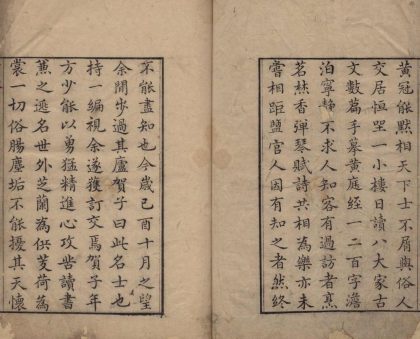 黃冠能黙相天下士不屑與俗人
交居恒坐一小樓日讀八大家古
文數篇手摹黃庭经一二百字澹
泊寧静不求人知客有過訪者烹
茗𤍠香彈琴賦詩共相為樂亦未
嘗相距盬官人因有知之者然終
不能盡知也今歳己酉十月之望
余閒步過其廬賀子曰此名士也
持一編視余遂獲訂交焉賀子年
方少能以勇猛精進心攻苦讀書
薫之遯名世外芝蘭為供芰荷為
裳一切俗腸塵垢不能擾其天懷